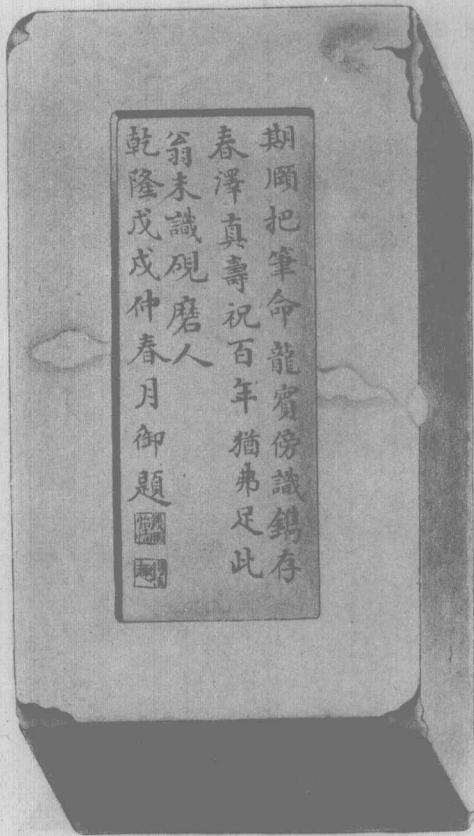 期頤把筆命龍賓傍識鐫存
春澤真壽祝百年猶弗足此
翁未識硯磨人
乾隆戊戌仲春月御題